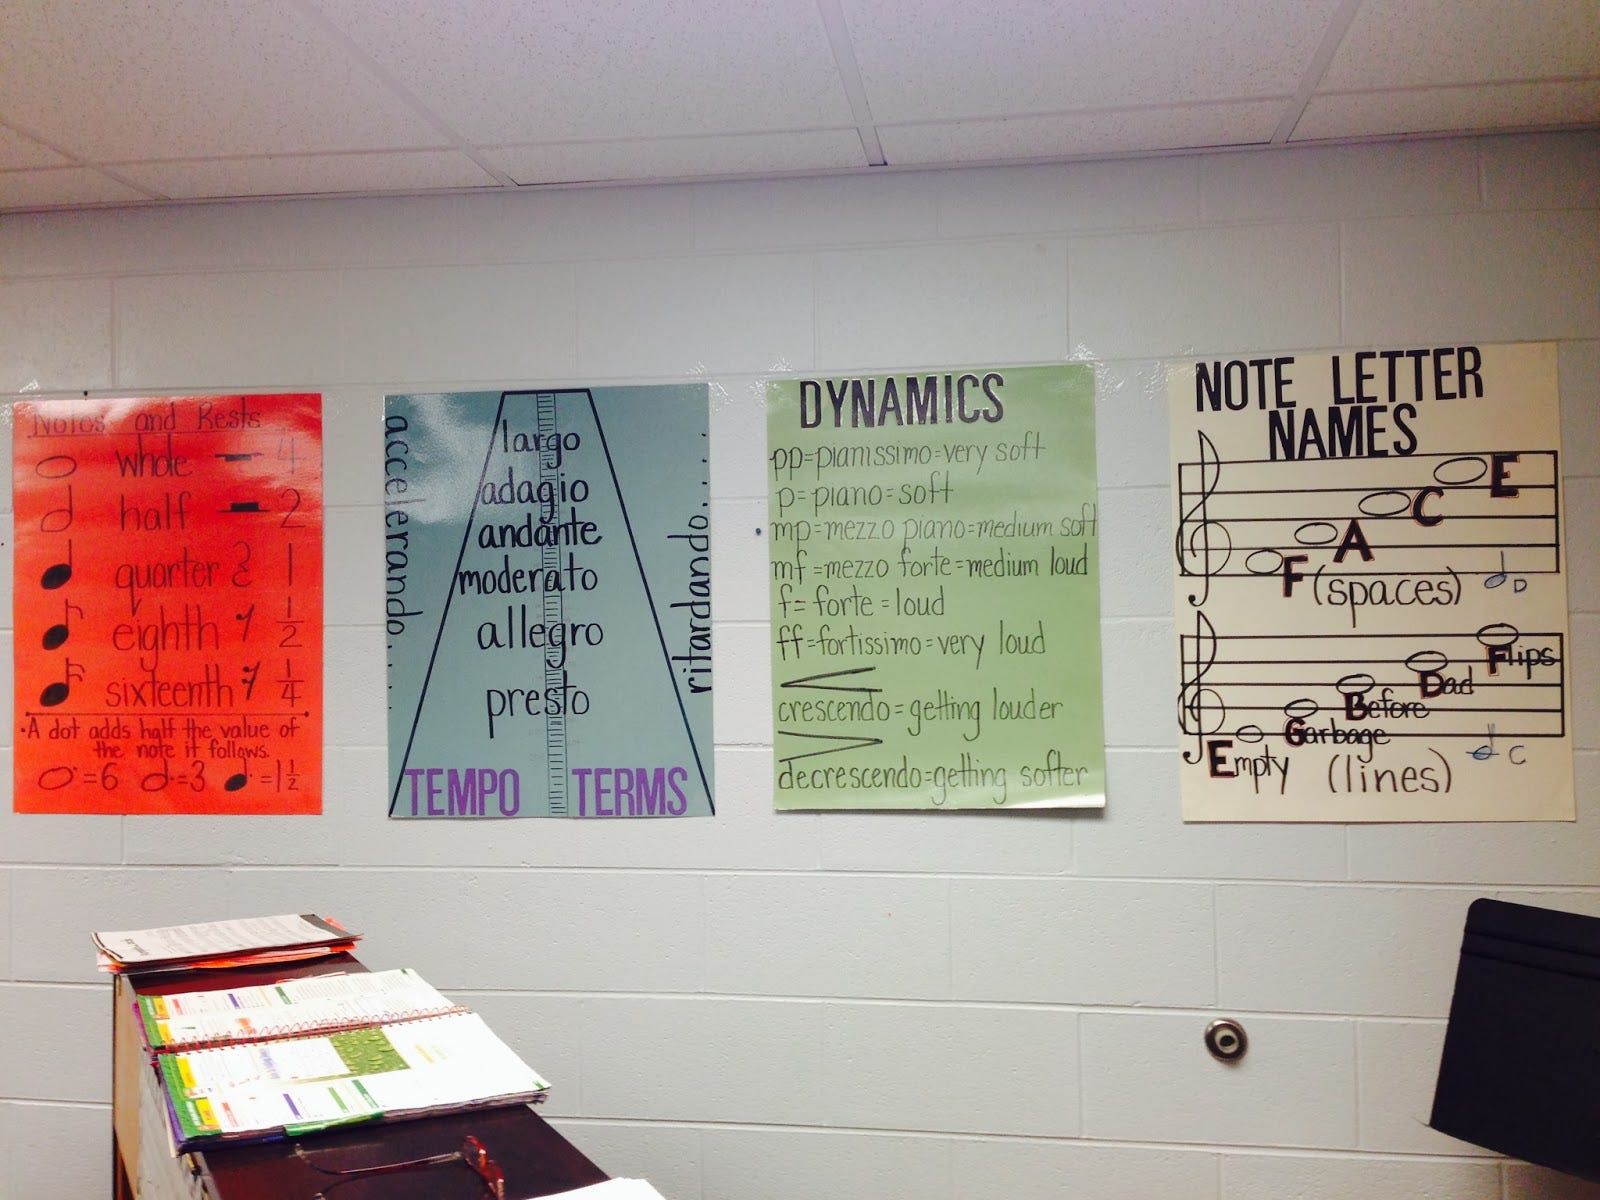 Notes and Rests
whole 4
half 2
quarter 1
eighth 1/2
sixteenth 1/4
• A dot adds half the value of
the note it follows.
=6 =3 =1 1/2
accelerando. . . . .
largo
adagio
andante
moderato
allegro
presto
ritardando. . . . . .
TEMPO TERMS
DYNAMICS
pp=pianissimo=very soft
p=piano=soft
mp=mezzo piano=medium soft
mf=mezzo forte=medium loud
f=forte=loud
ff=fortissimo=very loud
crescendo=getting louder
decrescendo=getting softer
NOTE LETTER
NAMES
F A C E
(spaces) D
Empty Garbage Before Dad Flips
(lines) C